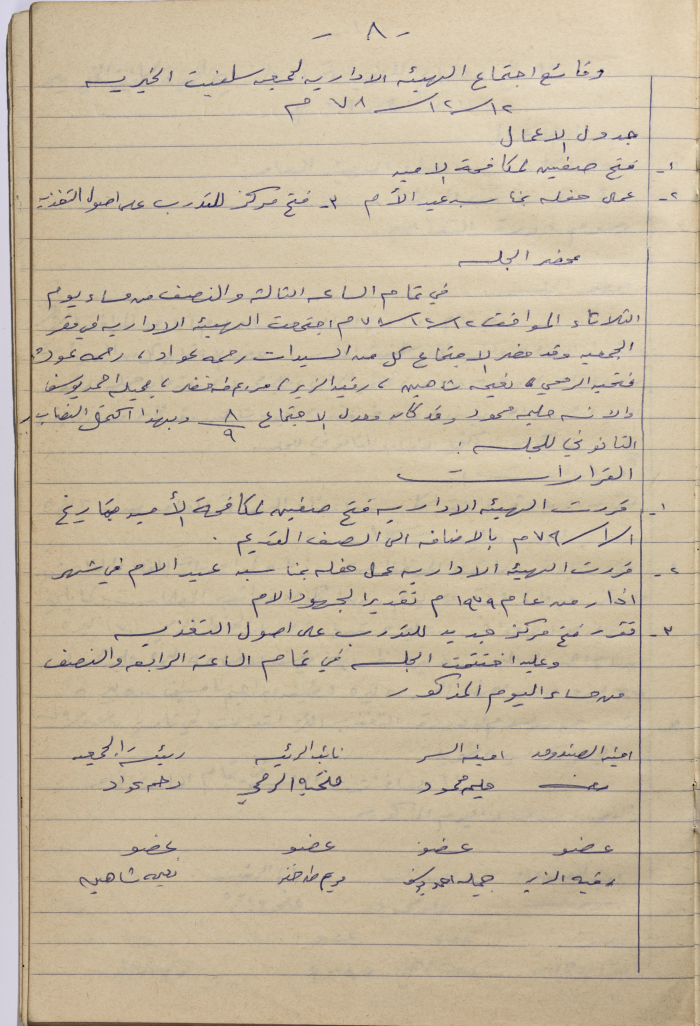 - ٨ -
وقائع اجتماع الهيئه الاداريه لجمعيه سلفيت الخيريه
١٢/١٢/٧٨ م
جدول الاعمال
١- فتح صفين لمكافحة الاميه
٢- عمل حفله بمناسبه عيد الأم ٣- فتح مركز للتدرب على اصول التغذيه
محضر الجلسه
في تمام الساعه الثالثه والنصف من مساء يوم
الثلاثاء الموافق ١٢/١٢/٧٨ م اجتمعت الهيئه الاداريه في مقر
الجمعيه وقد حضر الاجتماع كل من السيدات رحمه عواد ، رحمه
فتحيه الرمحي ، نعيمه شاهين ، رقيه الزير ، مريم طه خضر ، جميله احمد يوسف
والانسه حليمه محمود وقد كان معدل الاجتماع ٨/٩ وبهذا اكتمل النصاب
القانوني للجلسه :
القرارات
١- قررت الهيئه الاداريه فتح صفين لمكافحة الأميه بتاريخ
١/١/٧٩ م بالاضافه الى الصف القديم .
٢- قررت الهيئه الاداريه عمل حفله بمناسبه عيد الام في شهر
اذار من عام ١٩٧٩ م تقديرا لجهود الام
٣- تقرر فتح مركز جديد للتدرب على اصول التغذيه
وعليه اختتمت الجلسه في تمام الساعة الرابعه والنصف
من مساء اليوم المذكور
امينه الصندوق امينه السر نائبه الرئيسه رئيسة الجمعيه
حليمه محمود فتحيه الرمحي رحمه عواد
عضو عضو عضو عضو
رقيه الزير جميله احمد يوسف مريم طه خضر نعيمه شاهين